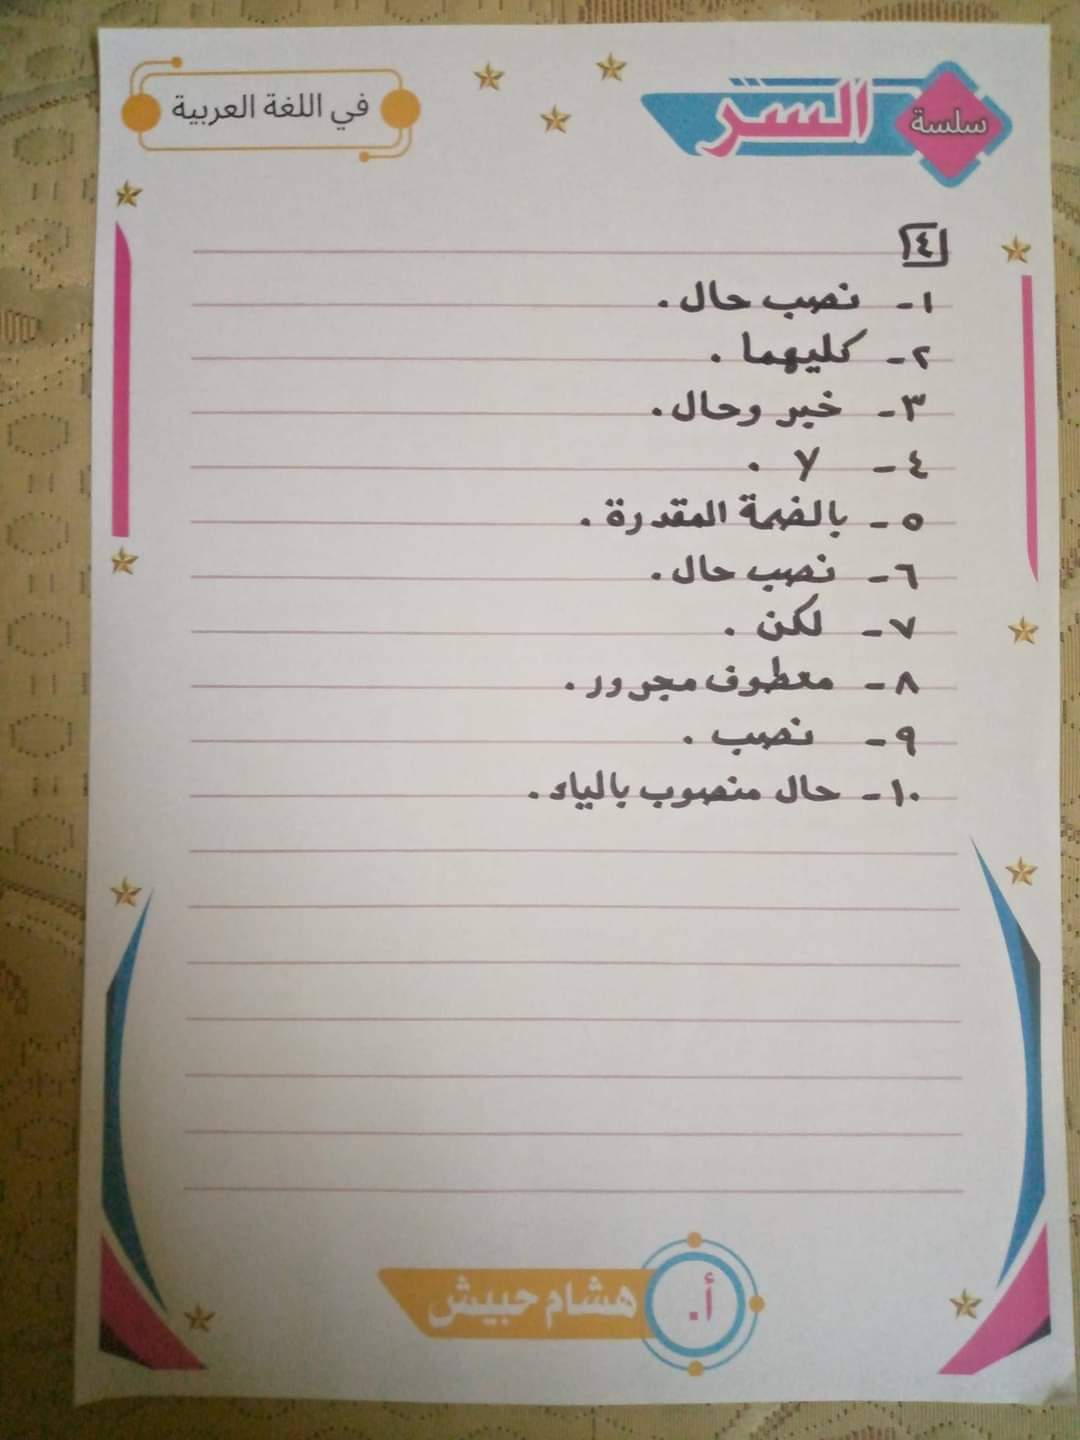 سلسة
السر
في اللغة العربية
٤
١- نصب حال.
٢- كليهما.
٣- خبر وحال.
٤- لا.
٥- بالضمة المقدرة.
٦- نصب حال.
٧- لكن.
٨- معطوف مجرور.
٩- نصب.
١٠- حال منصوب بالياء.
أ. هشام حبيش